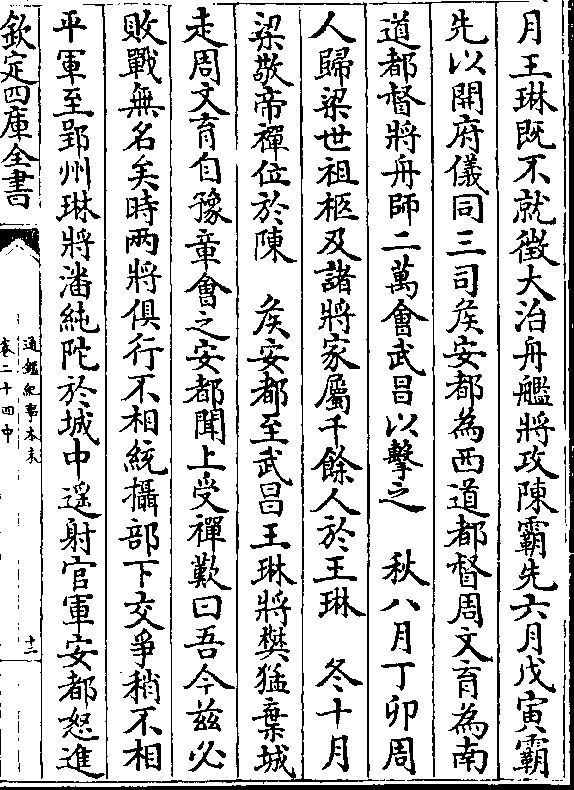 月王琳既不就徵大治舟艦將攻陳霸先六月戊寅霸
先以開府儀同三司侯安都為西道都督周文育為南
道都督將舟師二萬會武昌以擊之　秋八月丁卯周
人歸梁世祖柩及諸將家屬千餘人於王琳　冬十月
梁敬帝禪位於陳　侯安都至武昌王琳將樊猛棄城
走周文育自豫章會之安都聞上受禪歎曰吾今兹必
敗戰無名矣時兩將俱行不相統攝部下交爭稍不相
平軍至郢州琳將潘純陀於城中遥射官軍安都怒進
欽定四庫全書
通鑑紀事本末
卷二十四中
十二